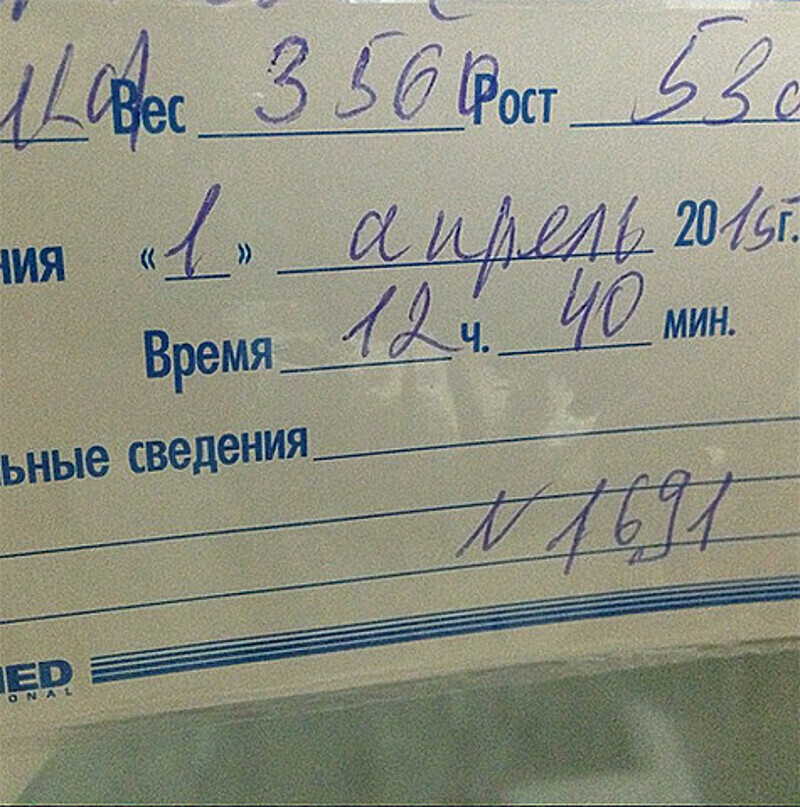 Вес 3560 Рост 53с
ния «1» апрель 2015г.
Время 12 ч. 40 мин.
льные сведения
N 1691
MED
ONAL